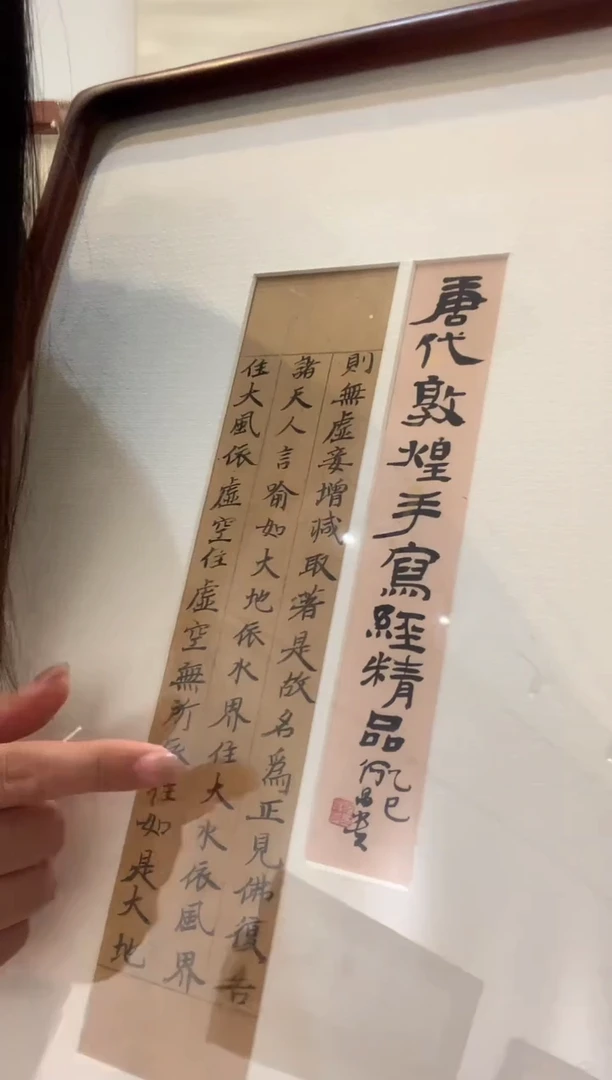 唐代敦煌手寫經精品
乙巳
何昌
則無虛妄增減取著是故名為正見佛復告
諸天人言喻如大地依水界住大水依風界
住大風依虛空住虛空無所依住如是大地